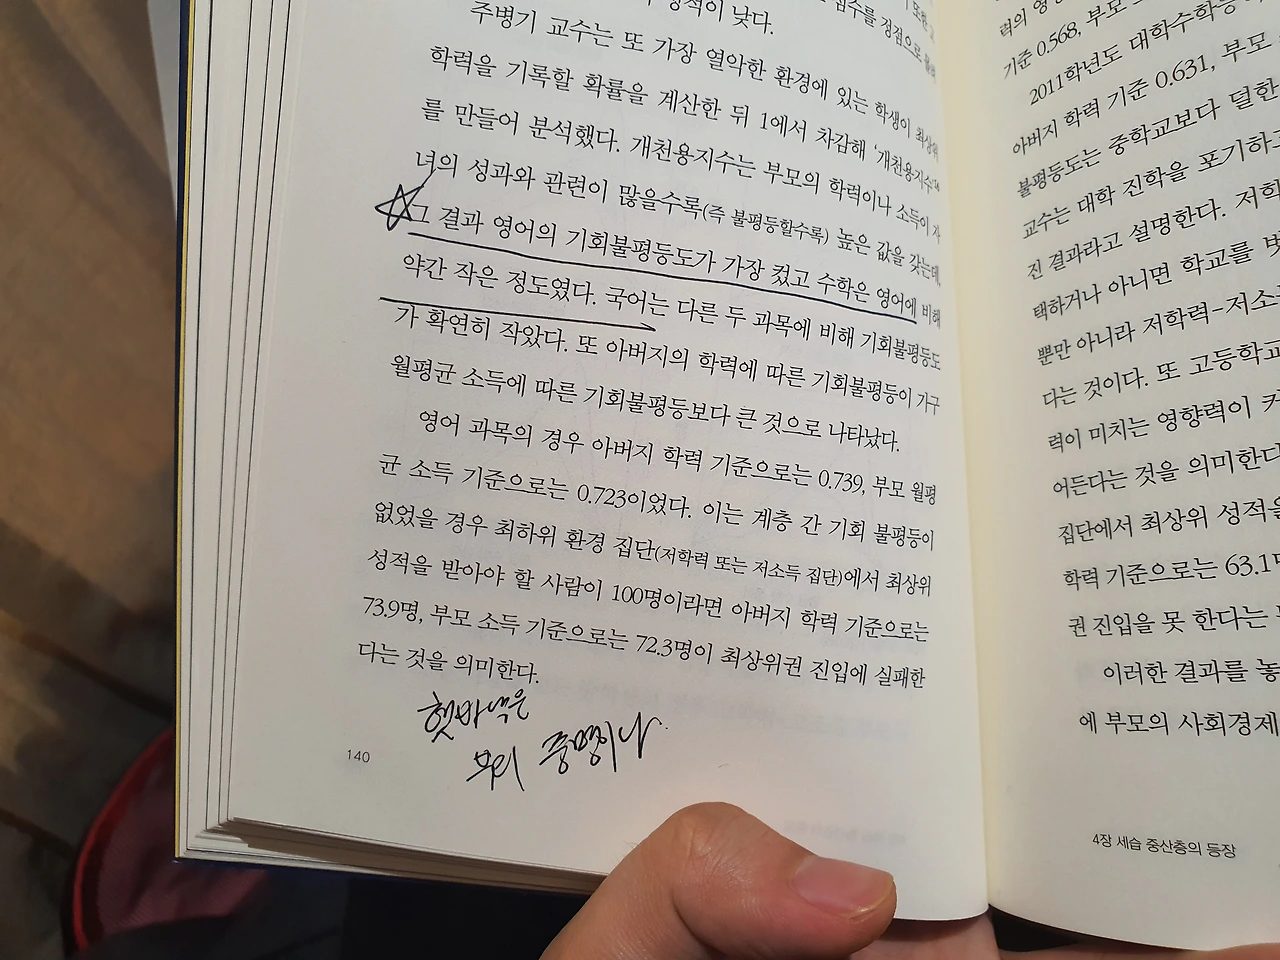 성적이 낮다.
점수를 정점으로
주병기 교수는 또 가장 열악한 환경에 있는 학생이 최상위
학력을 기록할 확률을 계산한 뒤 1에서 차감해 '개천용지수'
를 만들어 분석했다. 개천용지수는 부모의 학력이나 소득이 자
녀의 성과와 관련이 많을수록(즉 불평등할수록) 높은 값을 갖는데,
그 결과 영어의 기회불평등도가 가장 컸고 수학은 영어에 비해
약간 작은 정도였다. 국어는 다른 두 과목에 비해 기회불평등도
가 확연히 작았다. 또 아버지의 학력에 따른 기회불평등이 가구
월평균 소득에 따른 기회불평등보다 큰 것으로 나타났다.
영어 과목의 경우 아버지 학력 기준으로는 0.739, 부모 월평
균 소득 기준으로는 0.723이었다. 이는 계층 간 기회 불평등이
없었을 경우 최하위 환경 집단(저학력 또는 저소득 집단)에서 최상위
성적을 받아야 할 사람이 100명이라면 아버지 학력 기준으로는
73.9명, 부모 소득 기준으로는 72.3명이 최상위권 진입에 실패한
다는 것을 의미한다.
140
력의 영
기준 0.568, 부모
2011학년도 대학수학능
아버지 학력 기준 0.631, 부모
불평등도는 중학교보다 덜한
교수는 대학 진학을 포기하
진 결과라고 설명한다. 저학
택하거나 아니면 학교를 벗
뿐만 아니라 저학력-저소
다는 것이다. 또 고등학교
력이 미치는 영향력이 커
어든다는 것을 의미한다
집단에서 최상위 성적을
학력 기준으로는 63.1명
권 진입을 못 한다는
이러한 결과를 놓
에 부모의 사회경제
4장 세습 중산층의 등장